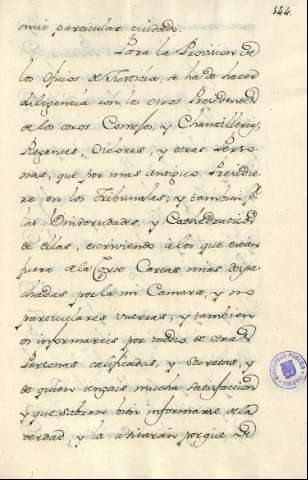 144.
mui particular cuidado.
Para la Provision de
los Oficios de Justicia, se ha de hacer
diligencia con los otros Presidentes
de los otros Consejos, y Chancillerias,
Regentes, Oidores, y otras Perso-
nas, que por mas antiguo Presidie-
re en los Tribunales; y tambien, p.r
las Universidades, y Cathedraticos
de ellas, escriviendo à los que están
fuera de la Corte Cartas mias despa-
chadas por la mi Camara, y no
particulares vuestras; y tambien
os informareis por medio de otras
Personas calificadas, y secretas, y
de quien tengais mucha satisfaccion
y que sabran bien informarse de la
verdad, y la dirán porque de
BIBLIOTECA PUBLICA
TOLEDO